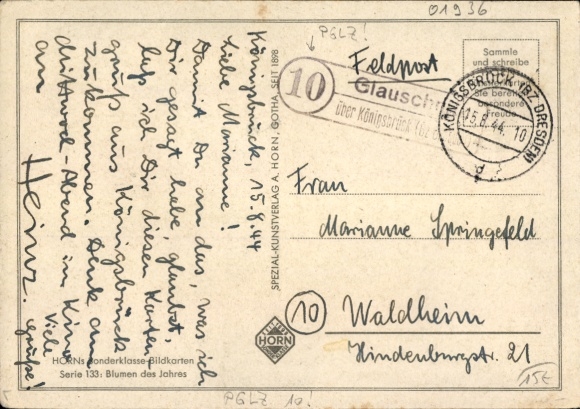 01936
PGLZ!
Feldpost
Sammle
und schreibe
Sie bereiten
besondere
Freude
10
Glausch
über Königsbrück (Bz
KÖNIGSBRÜCK (BZ DRESDEN)
15.8.44.10
Königsbrück, 15.8.44
Liebe Marianne!
Damit Du an das, was ich
Dir gesagt habe, glaubst,
laß ich Dir diesen Karten-
gruß aus Königsbrück
zukommen. Denk an
die Abend im Kino
an
Viele Grüße!
Heinz.
SPEZIAL-KUNSTVERLAG A. HORN, GOTHA, SEIT 1898
Frau
Marianne Springefeld
10 Waldheim
Hindenburgstr. 21
HORN
HORNs Sonderklasse-Bildkarten
Serie 133: Blumen des Jahres
PGLZ 10!
15€